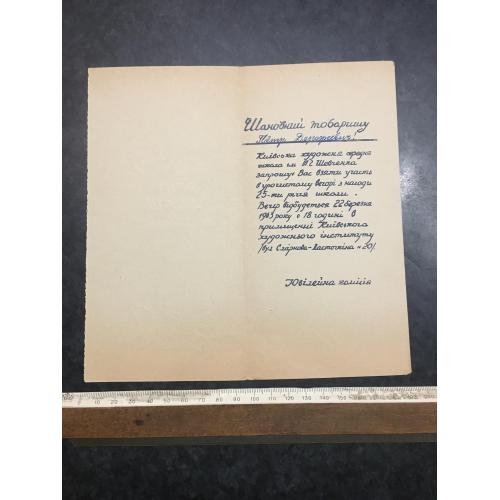 Шановний товаришу
Петр !
Київська художня середня
школа ім. Т.Г. Шевченка
запрошує Вас взяти участь
в урочистому вечорі з нагоди
25-ти річя школи.
Вечір відбудеться 22 березня
1963 року о 18 годині в
приміщенні Київського
художнього інституту
/вул Смирнова-Ласточкіна № 20/.
Ювілейна комісія
10 20 30 40 50 60 70 80 90 100 110 120 130 140 150